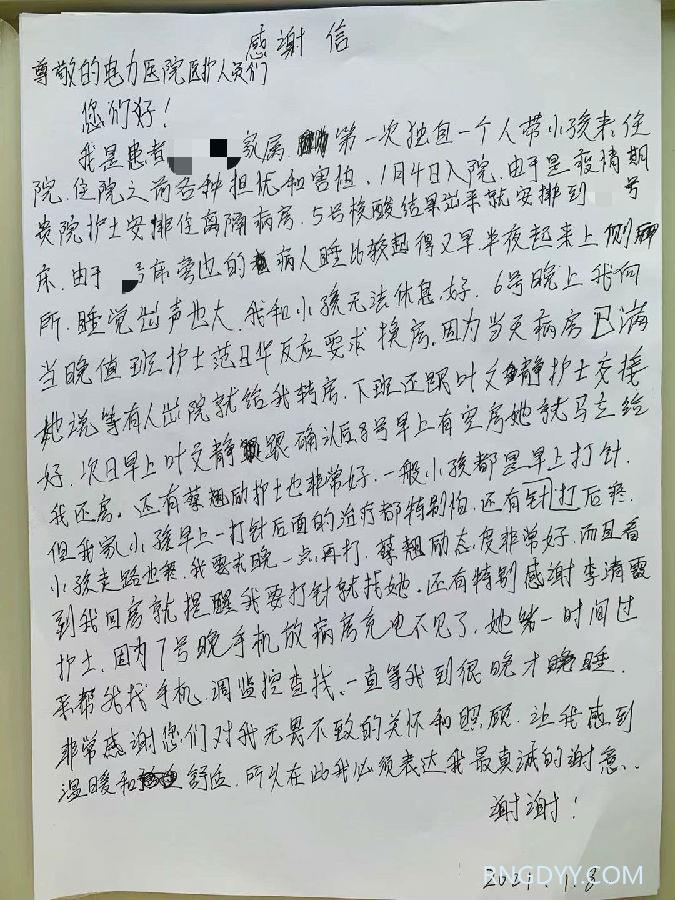 感谢 信
尊敬的电力医院医护人员们
您们好！
我是患者 家属 第一次独自一个人带小孩来住
院，住院之前各种担忧和害怕，1月4日入院，由于是疫情期
贵院护士安排住离隔病房，5号核酸结果出来就安排到 号
床，由于 号床旁边的 病人睡比较起得又早，半夜起来上侧
所，睡觉 声也大，我和小孩无法休息好，6号晚上我向
当晚值班护士范日华反应要求换房，因为当天病房已满
她说等有人出院就给我转房，下班还跟叶文静护士交接
好，次日早上叶文静 跟确认后8号早上有空房她就马上给
我还房。还有蔡翘励护士也非常好，一般小孩都是早上打针，
但我家小孩早上一打针后面的治疗都特别怕，还有针打后疼，
小孩走路也 ，我要求晚一点再打，蔡翘励态度非常好，而且看
到我回房就提醒我要打针就找她，还有特别感谢李清霞
护士，因为7号晚手机放病房充电不见了，她第一时间过
来帮我找手机，调监控查找，一直等我到很晚才 睡，
非常感谢您们对我无畏不致的关怀和照顾，让我感到
温暖和 舒适，所以在此我必须表达我最真诚的谢意、
谢谢！
2021.1.8
RNGDYY.COM